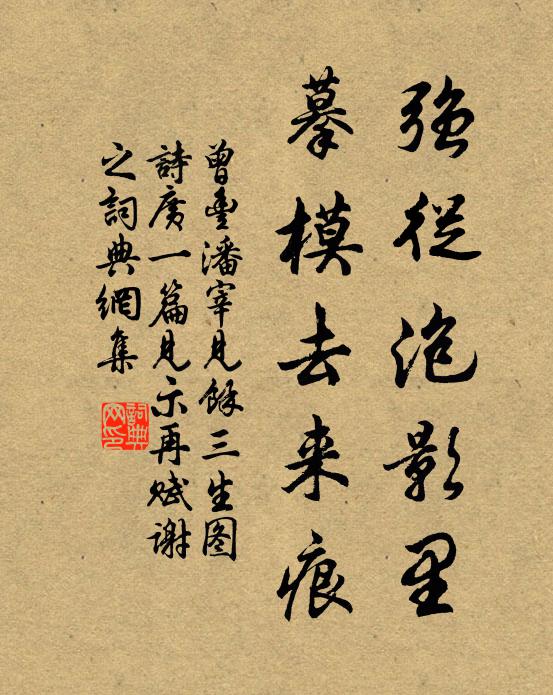 强從泡影里
摹模去来痕
曾豊潘宰見餘三生图
詩廣一篇見示再赋謝
之詞典網集
詞典网印